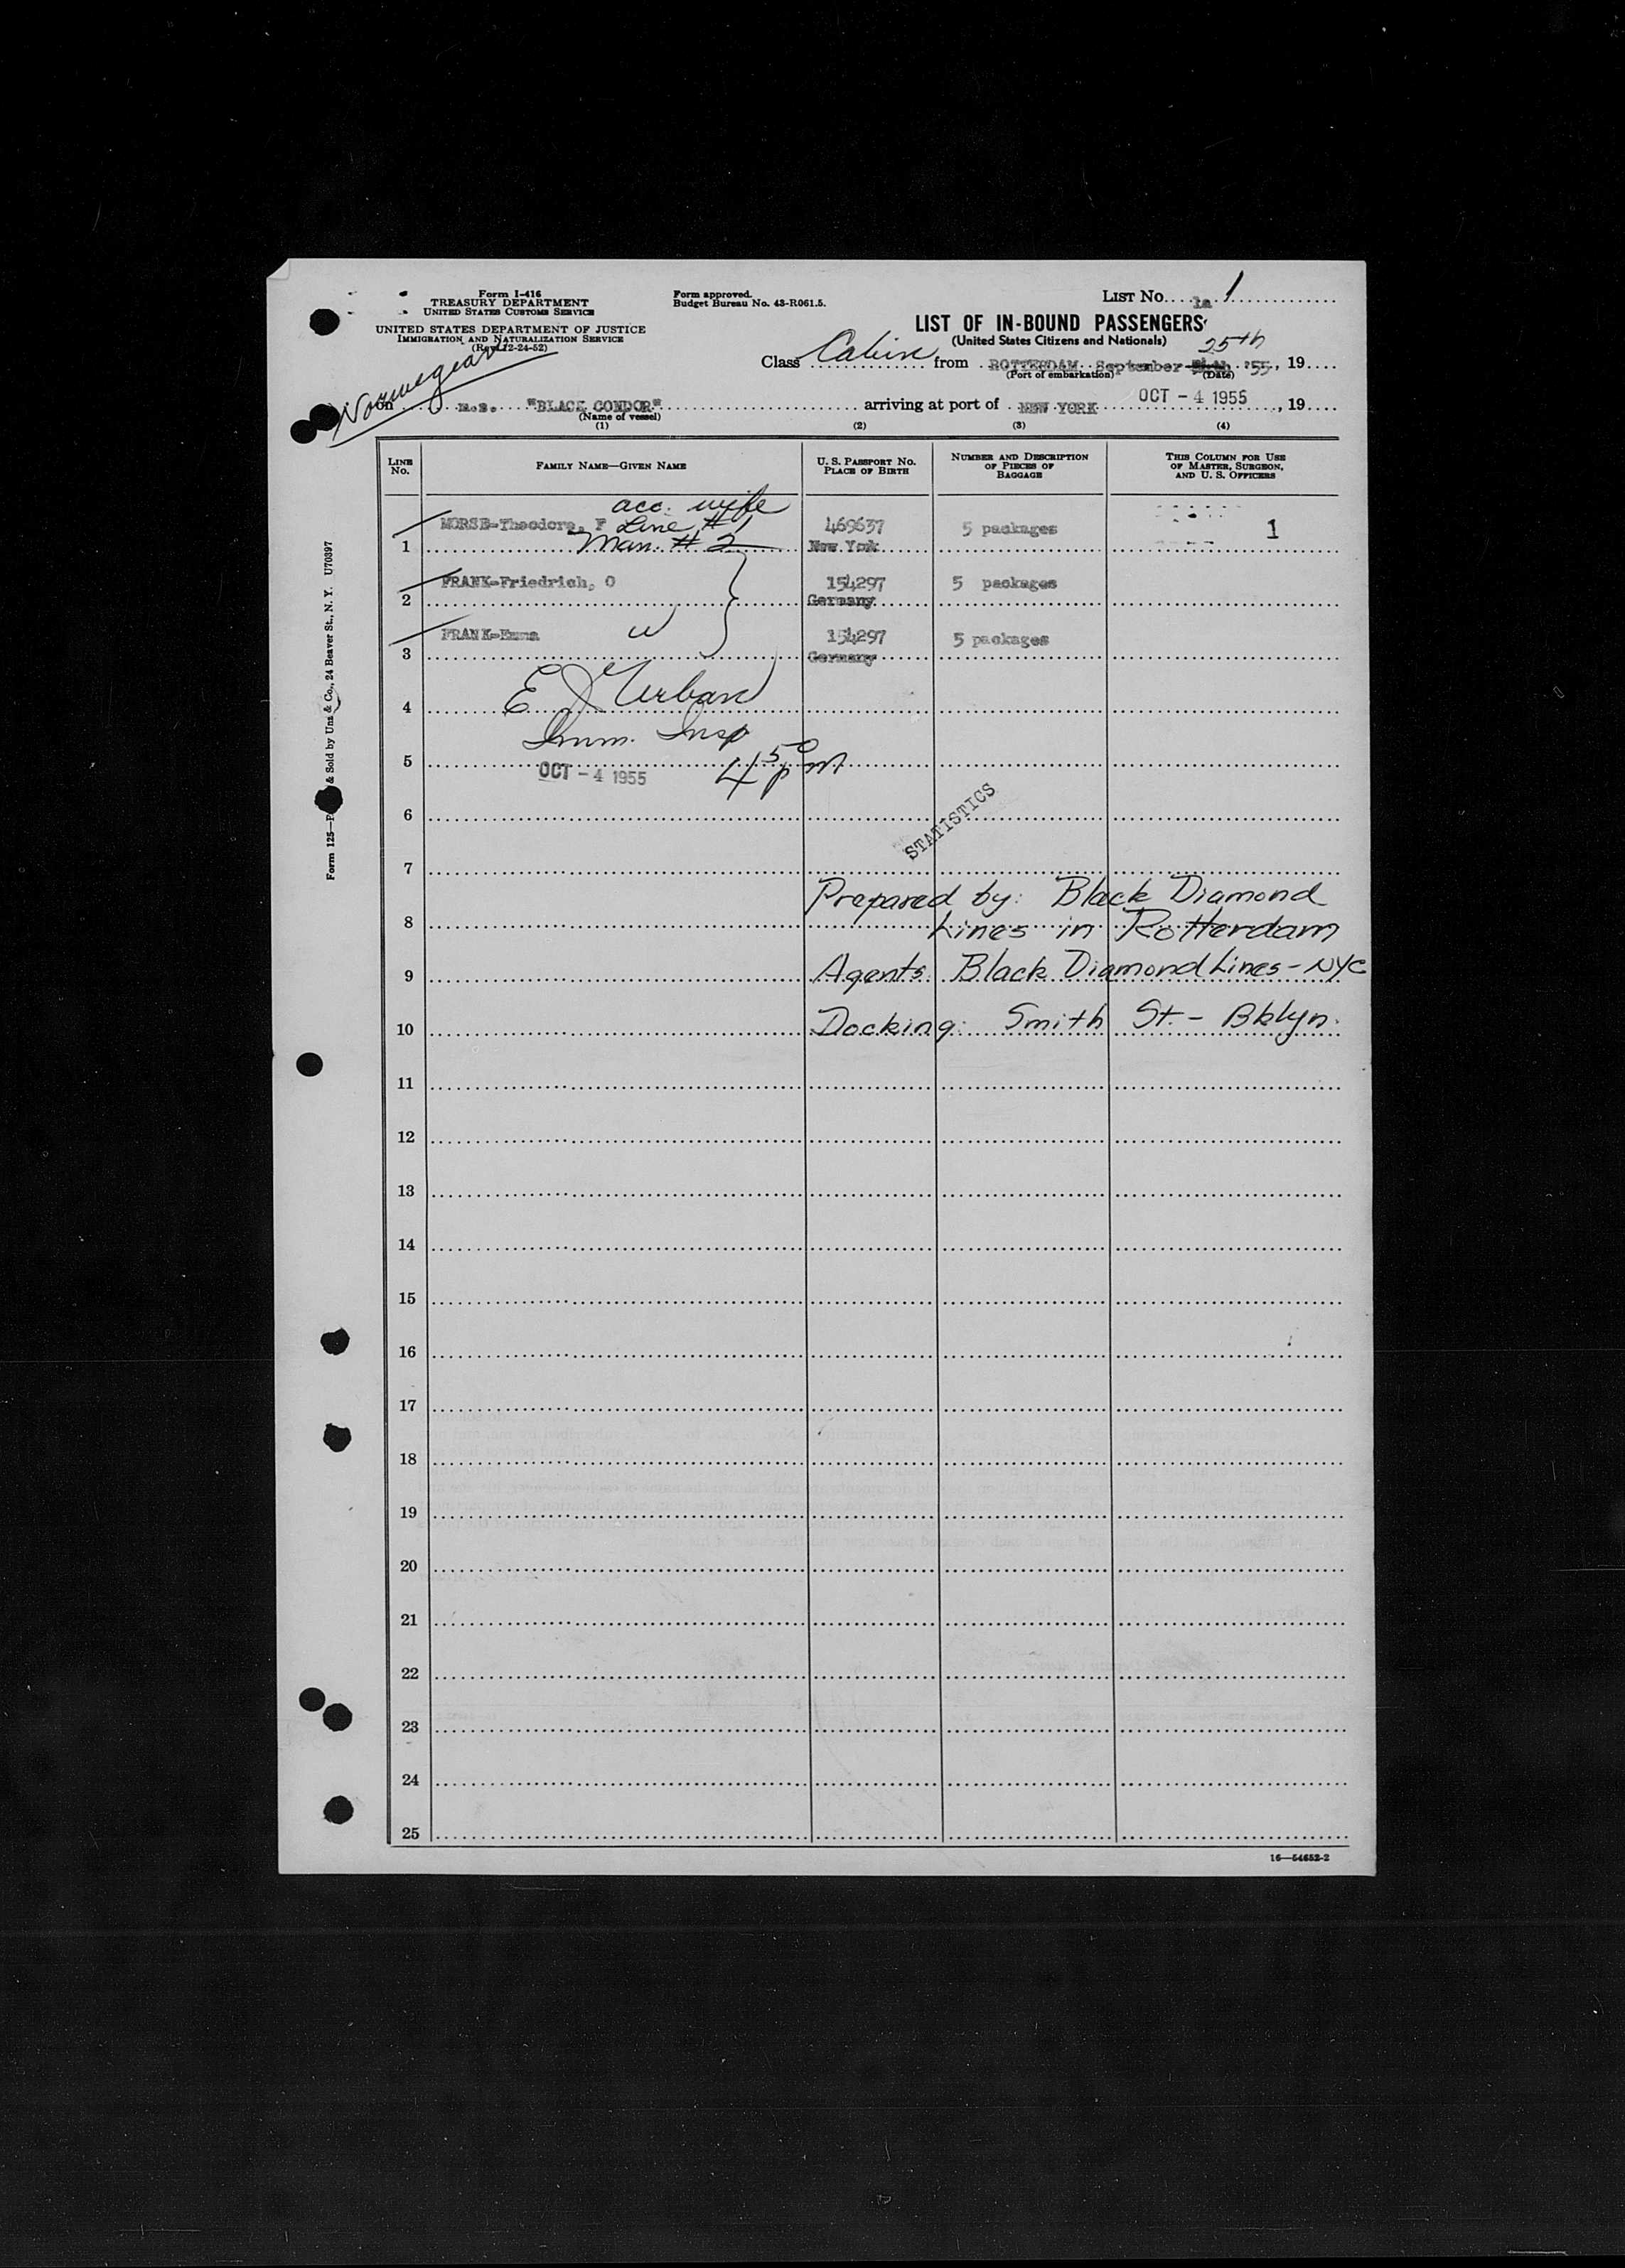 Form I-416
TREASURY DEPARTMENT
UNITED STATES CUSTOMS SERVICE
UNITED STATES DEPARTMENT OF JUSTICE
IMMIGRATION AND NATURALIZATION SERVICE
(Rev. 12-24-52)
Norwegian
Form approved.
Budget Bureau No. 43-R061.5.
LIST NO. 1a 1
LIST OF IN-BOUND PASSENGERS
(United States Citizens and Nationals)
25th
Class Cabin from ROTTERDAM September '55, 19
(Port of embarkation) (Date)
on M.S. "BLACK CONDOR" arriving at port of NEW YORK OCT - 4 1955, 19
(Name of vessel)
(1) (2) (3) (4)
LINE NO. FAMILY NAME—GIVEN NAME U. S. PASSPORT NO. PLACE OF BIRTH NUMBER AND DESCRIPTION OF PIECES OF BAGGAGE THIS COLUMN FOR USE OF MASTER, SURGEON, AND U. S. OFFICERS
acc. wife
MORSE-Theodore, F Line #1 469637 5 packages 1
1 Man. #2 New York
FRANK-Friedrich, O 154297 5 packages
2 Germany
FRANK-Emma W 154297 5 packages
3 Germany
4 E J Urban
Imm. Insp
5 OCT - 4 1955 4 50 pm
6
STATISTICS
7
Prepared by: Black Diamond
8 Lines in Rotterdam
9 Agents: Black Diamond Lines - NYC
10 Docking: Smith St. - Bklyn.
11
12
13
14
15
16
17
18
19
20
21
22
23
24
25
16—54652-2
& Sold by Unz & Co., 24 Beaver St., N. Y. U70397
Form 125